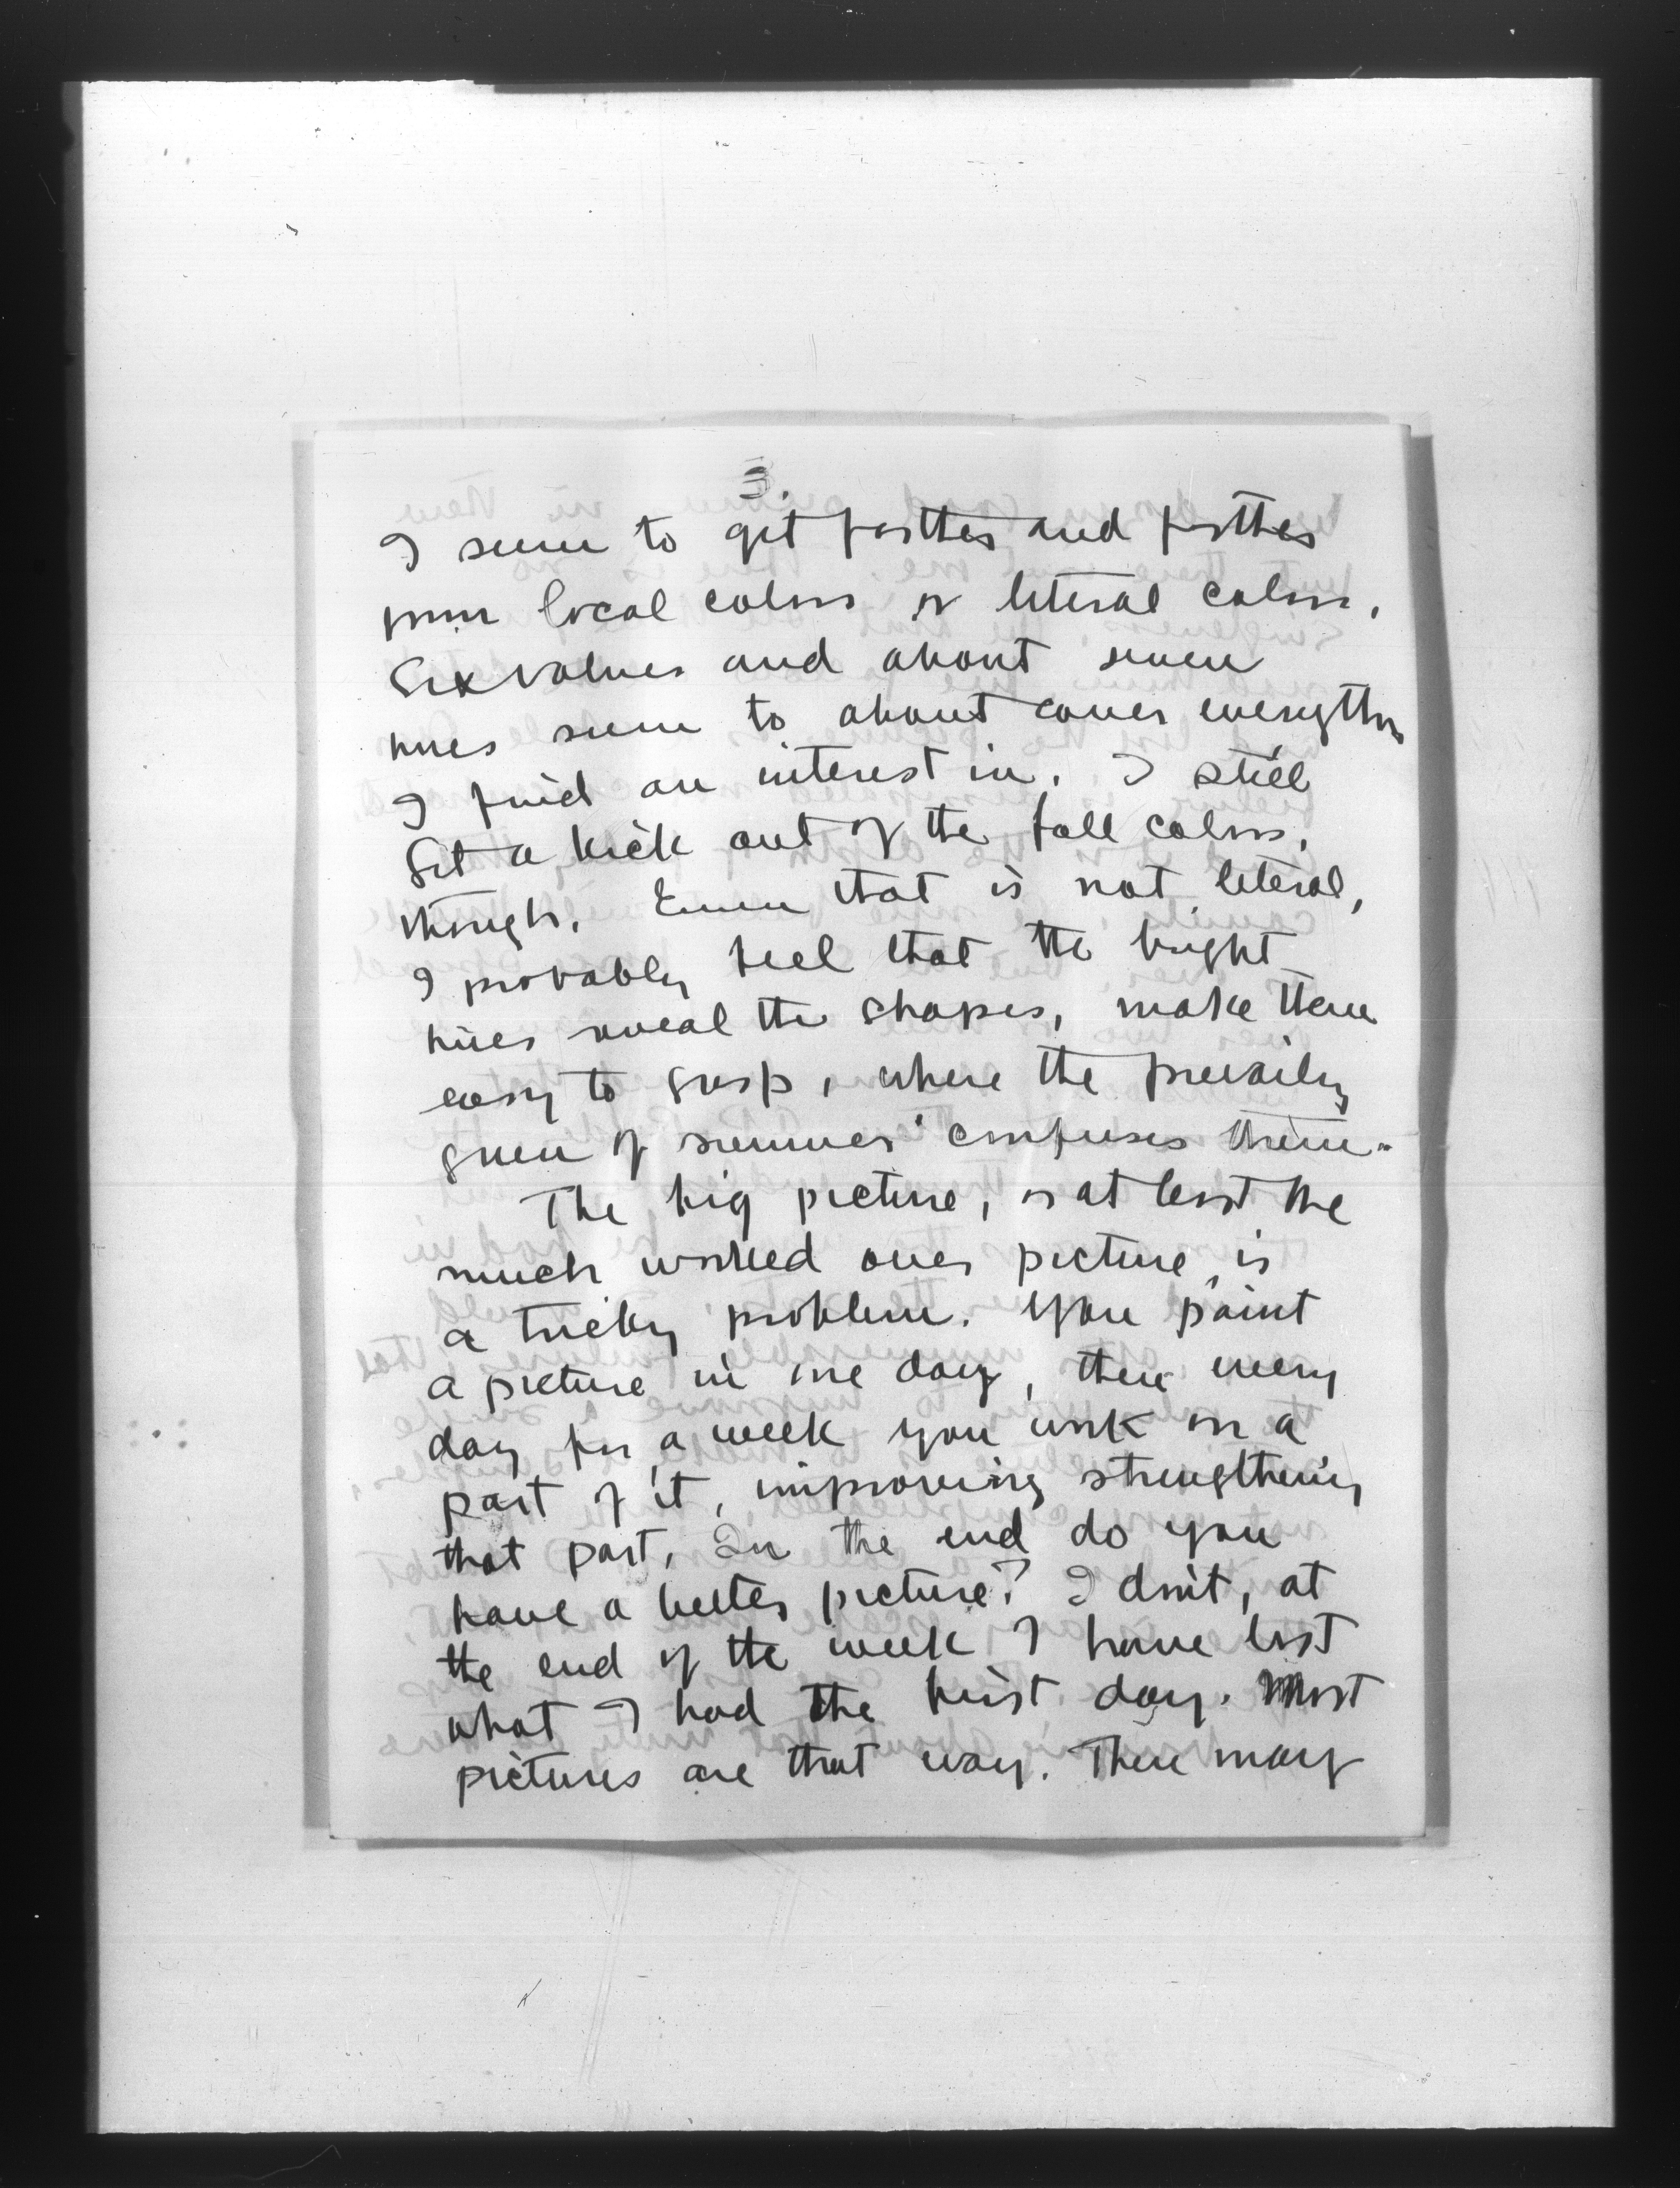 3.
I seem to get farther and farther
from local colors or literal colors.
Six values and about seven
hues seem to about cover everything
I find an interest in. I still
Get a kick out of the fall colors,
though. Even that is not literal,
I probably feel that the bright
hues reveal the shapes, make them
easy to grasp, where the prevailing
green of summer confuses them.
The big picture, or at least the
much worked over picture, is
a tricky problem. You paint
a picture in one day, then every
day for a week you work on a
part of it, improving strengthening
that part. In the end do you
have a better picture? I don't, at
the end of the week I have lost
what I had the first day. Most
pictures are that way. There may